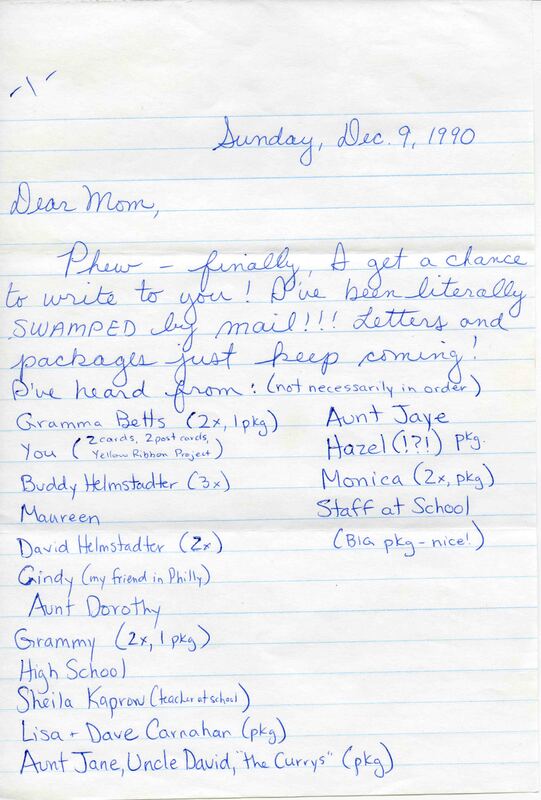 -1-
Sunday, Dec. 9, 1990
Dear Mom,
Phew - finally, I get a chance
to write to you! I've been literally
SWAMPED by mail!!! Letters and
packages just keep coming!
I've heard from: (not necessarily in order)
Gramma Betts (2x, 1 pkg)
You (2 cards, 2 post cards,
Yellow Ribbon Project)
Buddy Helmstadter (3x)
Maureen
David Helmstadter (2x)
Cindy (my friend in Philly)
Aunt Dorothy
Grammy (2x, 1 pkg)
High School
Sheila Kaprow (teacher at school)
Lisa + Dave Carnahan (pkg)
Aunt Jane, Uncle David, "the Currys" (pkg)
Aunt Jaye
Hazel (!?!) pkg.
Monica (2x, pkg)
Staff at School
(BIG pkg - nice!)